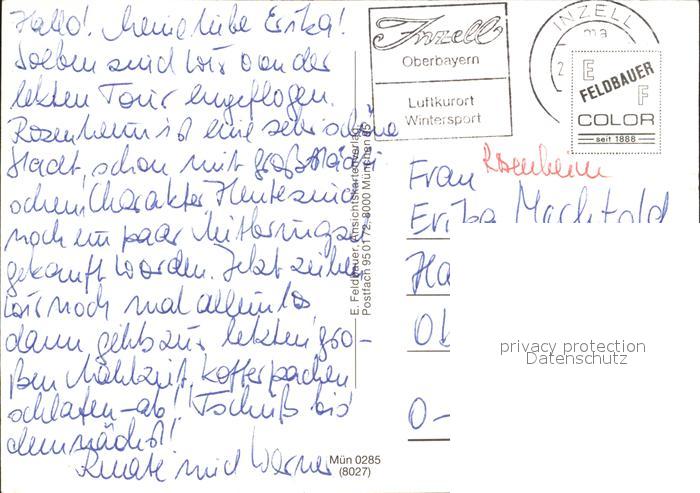 Hallo! Meine liebe Erika!
Soeben sind wir von der
letzten Tour eingeflogen.
Rosenheim ist eine sehr schöne
Stadt, schon mit großstädti
schem Charakter. Heute sind
noch ein paar
gekauft worden. Jetzt ziehen
wir noch mal allein los,
dann gehts zur letzten gro-
ßen Mahlzeit, Koffer packen
schlafen - ab! Tschüß bis
demnächst!
Renate und Werner
Mün 0285
(8027)
E. Feldbauer, Ansichtskartenverlag
Postfach 950172, 8000 München 95
Inzell
Oberbayern
Luftkurort
Wintersport
INZELL
E
FELDBAUER
F
COLOR
seit 1888
Rosenheim
Frau
Erika
Ha
Ob
O-
privacy protection
Datenschutz